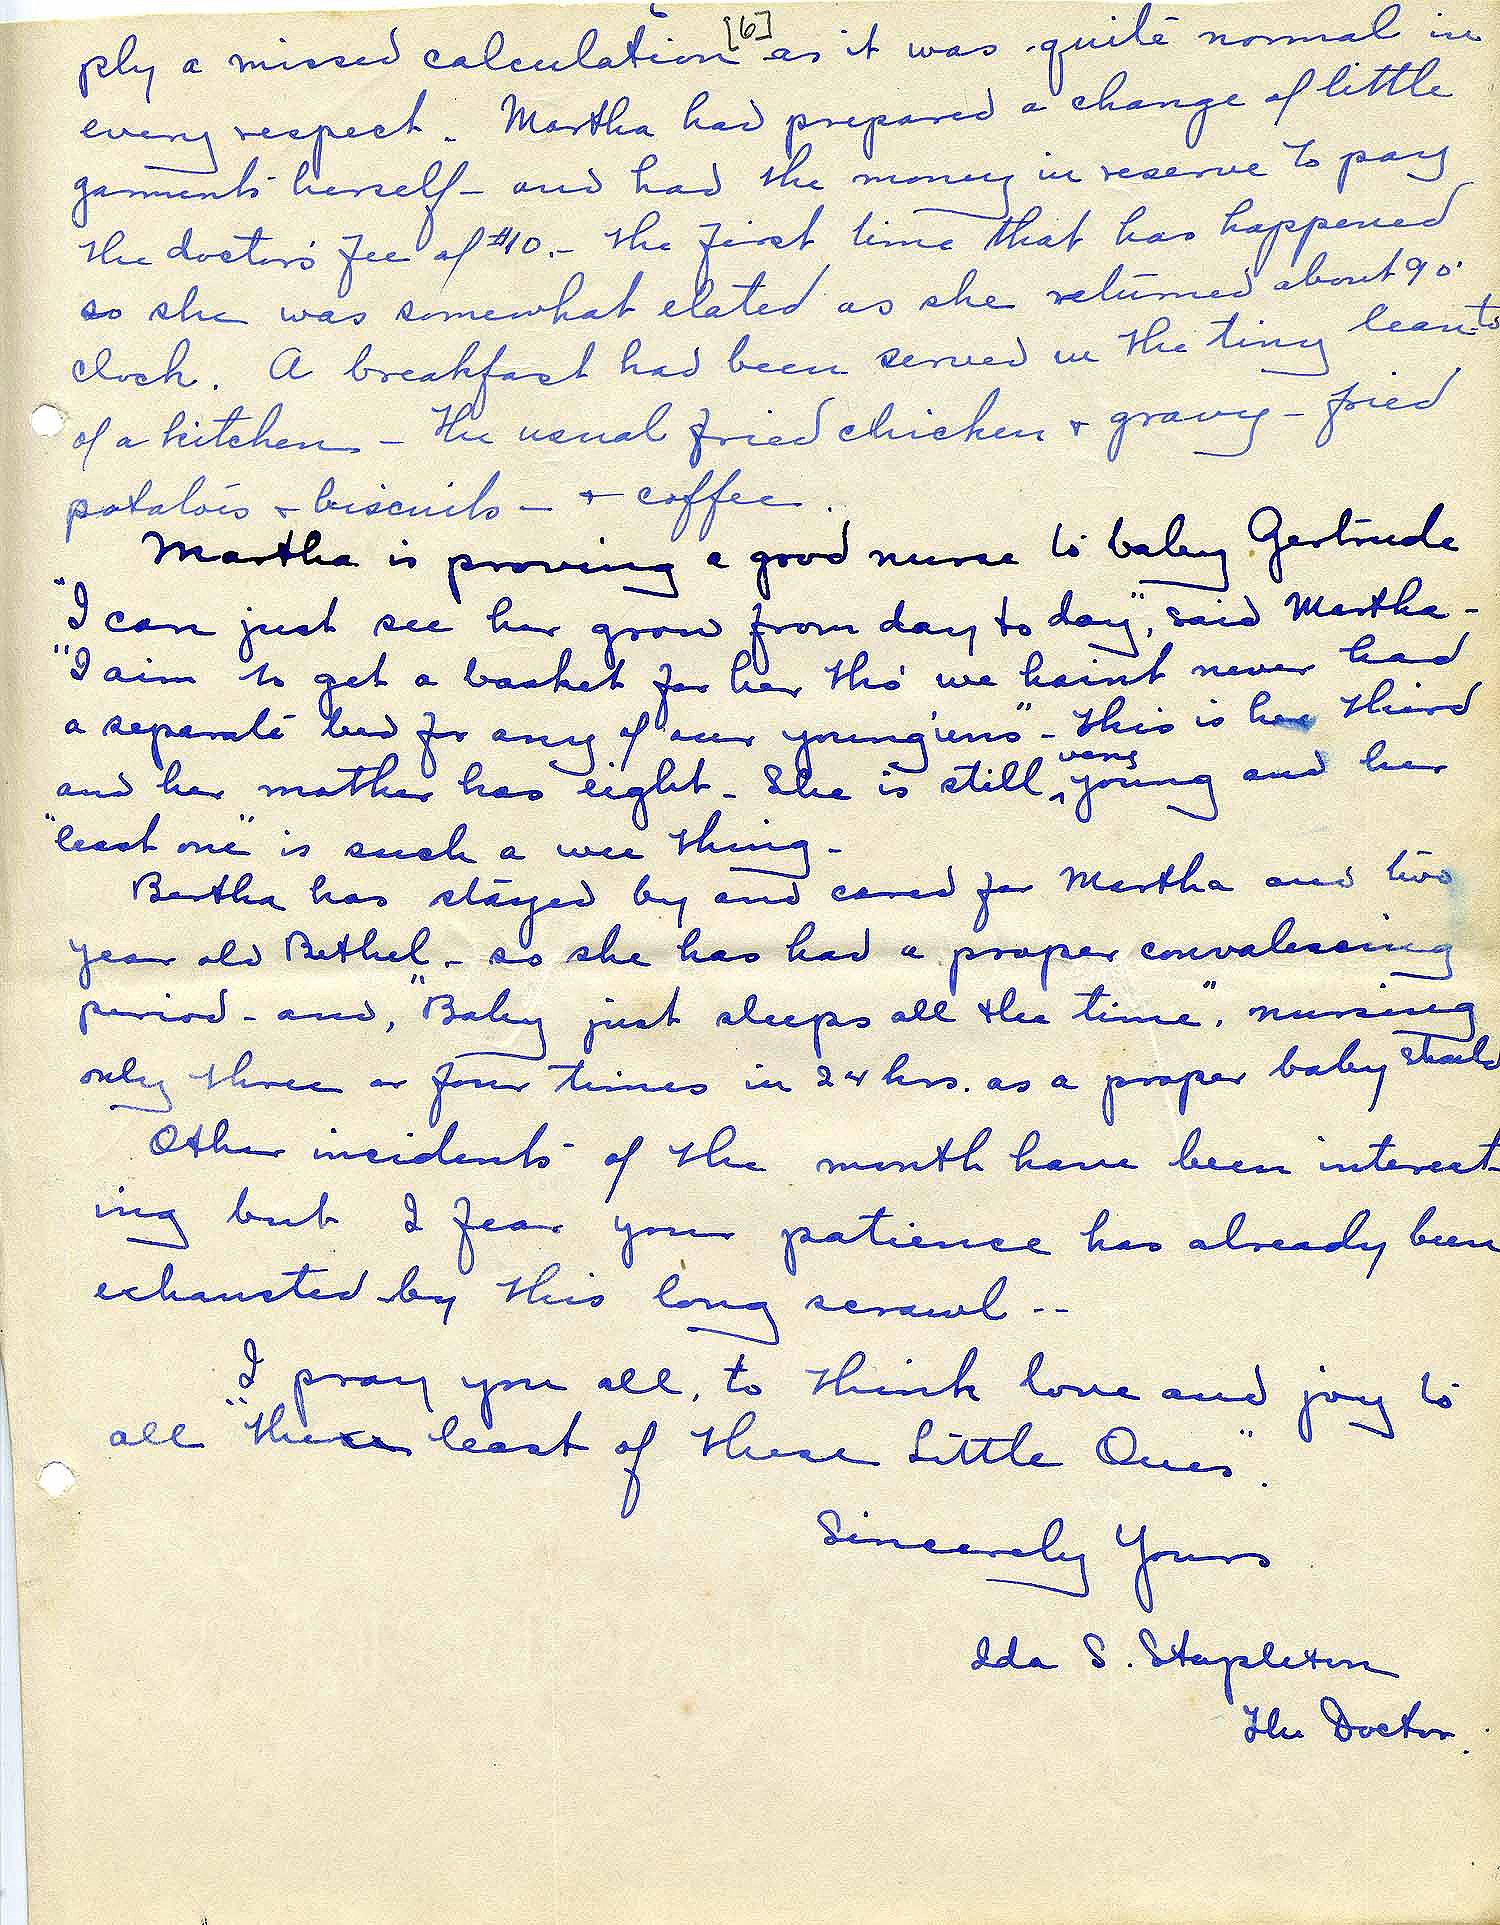 [6]
ply a missed calculation as it was quite normal in
every respect. Martha had prepared a change of little
garments herself - and had the money in reserve to pay
the doctor's fee of $10. - the first time that has happened
so she was somewhat elated as she returned about 9 o'
clock. A breakfast had been served in the tiny lean-to
of a kitchen - the usual fried chicken + gravy - fried
potatoes + biscuits - + coffee.
Martha is proving a good nurse to baby Gertrude
"I can just see her grow from day to day", said Martha -
"I aim to get a basket for her tho' we haint never had
a separate bed for any of our young'uns" - This is her third
and her mother has eight - She is still very young and her
"least one" is such a wee thing -
Bertha has stayed by and cared for Martha and two
year old Bethel - so she has had a proper convalescing
period - and, "Baby just sleeps all the time", nursing
only three or four times in 24 hrs. as a proper baby should
Other incidents of the month have been interest-
ing but I fear your patience has already been
exhausted by this long scrawl --
I pray you all, to think love and joy to
all "the least of these Little Ones".
Sincerely Yours
Ida S. Stapleton
The Doctor.